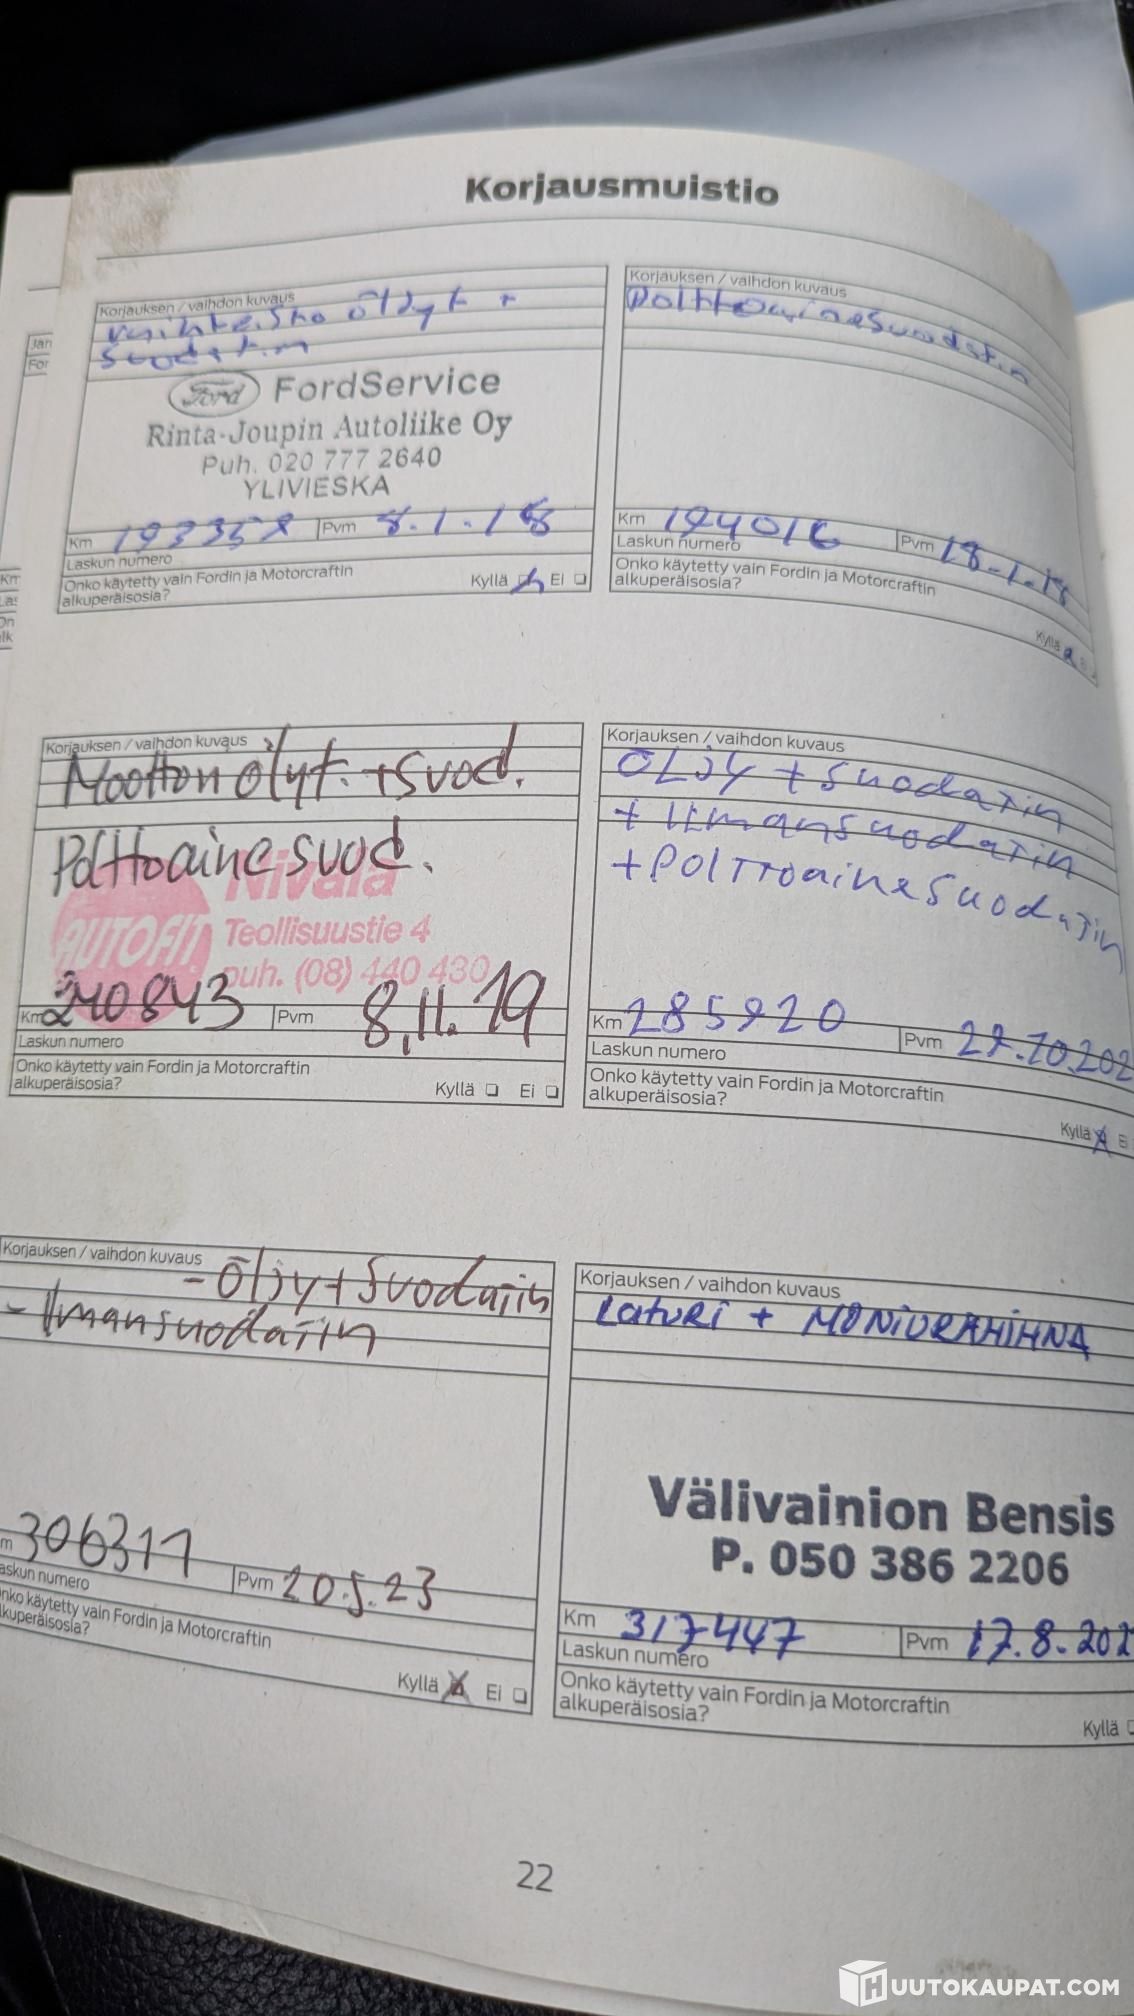 Korjausmuistio
Korjauksen / vaihdon kuvaus
vaihteisto öljyt +
suodatin
Ford FordService
Rinta-Joupin Autoliike Oy
Puh. 020 777 2640
YLIVIESKA
Km 193358 Pvm 8.1.18
Laskun numero
Onko käytetty vain Fordin ja Motorcraftin
alkuperäisosia?
Kyllä Ei
Korjauksen / vaihdon kuvaus
Polttoainesuodatin
Km 194016 Pvm 18.1.18
Laskun numero
Onko käytetty vain Fordin ja Motorcraftin
alkuperäisosia?
Kyllä
Korjauksen / vaihdon kuvaus
Moottori öljyt. + Suod.
Polttoaine suod.
Nivala
AUTOFIT Teollisuustie 4
puh. (08) 440 430
Km 240843 Pvm 8.11.19
Laskun numero
Onko käytetty vain Fordin ja Motorcraftin
alkuperäisosia?
Kyllä Ei
Korjauksen / vaihdon kuvaus
ÖLJY + suodatin
+ ilmansuodatin
+ POLTTOainesuodatin
Km 285920 Pvm 27.10.202
Laskun numero
Onko käytetty vain Fordin ja Motorcraftin
alkuperäisosia?
Kyllä Ei
Korjauksen / vaihdon kuvaus
- Öljy + Suodatin
- Ilmansuodatin
m 306311 Pvm 20.5.23
askun numero
nko käytetty vain Fordin ja Motorcraftin
kuperäisosia?
Kyllä Ei
Korjauksen / vaihdon kuvaus
LATURI + MONIURAHIHNA
Välivainion Bensis
P. 050 386 2206
Km 317447 Pvm 17.8.202
Laskun numero
Onko käytetty vain Fordin ja Motorcraftin
alkuperäisosia?
Kyllä
22
HUUTOKAUPAT.COM
Jän
For
Km
Las
On
alk